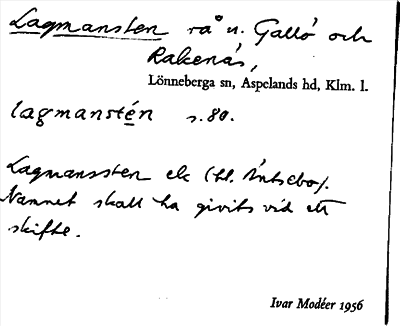 Lagmansten rå n. Gallö och
Rakenäs,
Lönneberga sn, Aspelands hd, Klm. l.
lagmanstén s. 80.
Lagmanssten ek (bl. Äntsebo).
Namnet skall ha givits vid ett
skifte.
Ivar Modéer 1956